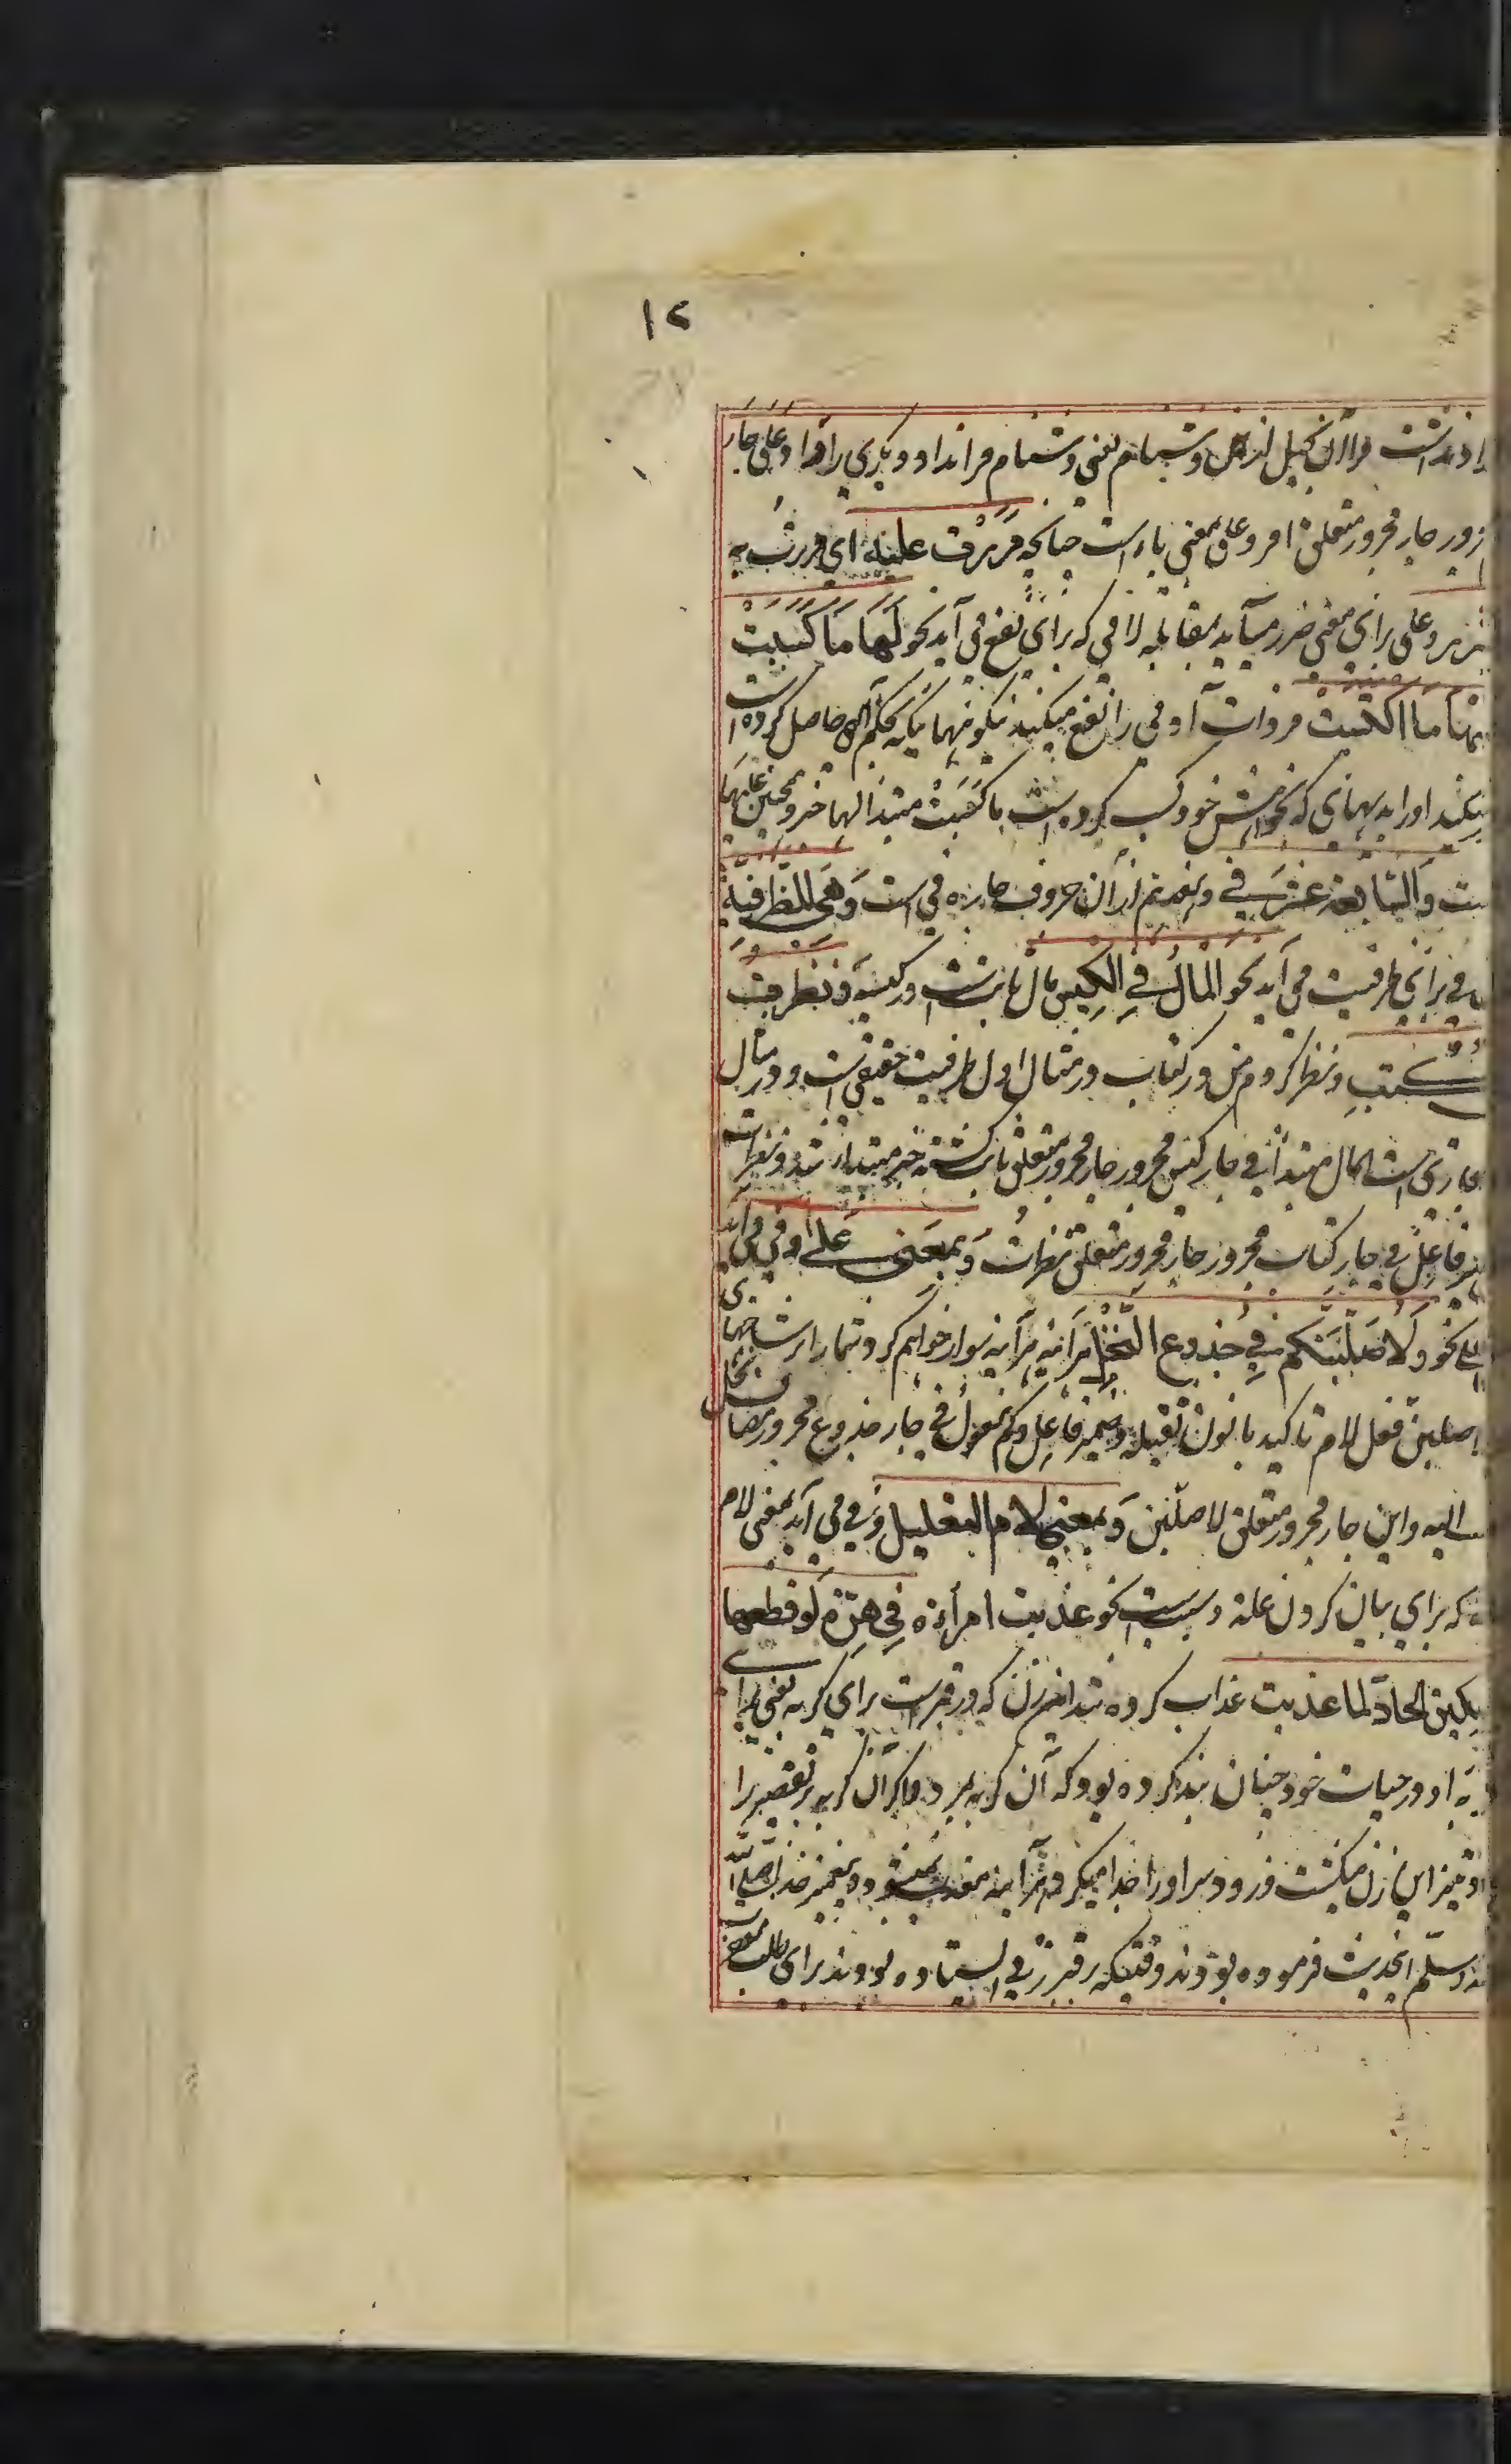 ۱۲
داد نداشت مرا آن بخیل از من و شتمام یعنی دشنام مرا نداد و دیگری را داد و علی جار
مجرور جار مجرور متعلق امر و علی بمعنی باء است چنانچه مررت علیه ای مررت به
و علی برای معنی ضرر میآید بمقابله لامی که برای نفع می آید نحو لها ما کسبت
علیها ما اکتسبت مر ذات آدمی را نفع میکنید نیکوئیهائیکه بحکم الهی حاصل کرده است
میکند او را بدیهای که بخواهش خود کسب کرده است ما کسبت مبتدا لها خبر و همچنین علیها
است والسابعة عشر فی و هفدهم از آن حروف جاره فی است وهی للظرفیة
فی برای ظرفیت می آید نحو المال فی الکیس مال ثابت است در کیسه و نظرت
فی الکتب و نظر کردم من در کتاب در مثال اول ظرفیت حقیقی است و در مثال
مجازی است المال مبتدا فی جار کیس مجرور جار مجرور متعلق ثابت گشته خبر مبتدا شد و نظرت
ضمیر فاعل فی جار کتاب مجرور جار مجرور متعلق نظرت وبمعنی علی و فی می آید
علی نحو ولاصلبنکم فی جذوع النخل هر آئینه هر آئینه سوار خواهم کرد شما را بر شاخهای
لاصلبن فعل لام تاکید با نون ثقیله ضمیر فاعل و کم مفعول فی جار جذوع مجرور مضاف نخل
مضاف الیه و این جار مجرور متعلق لاصلبن وبمعنی لام التعلیل و فی می آید بمعنی لام
که برای بیان کردن علة و سبب است نحو عذبت امرأة فی هرة لو قطعها
بسکین الحاد لما عذبت عذاب کرده شد این زن که در قبر است برای گربه یعنی برای
گربه او در حیات خود چنان بند کرده بود که آن گربه بمرد اگر آن گربه پر تقصیر را
این زن میکشت زود و سر او را جدا میکرد هر آئینه معذب نمیشود و پیغمبر خدا صلی الله
علیه وسلم این حدیث فرموده بودند وقتیکه بر قبر زنی ایستاده بودند برای طلب